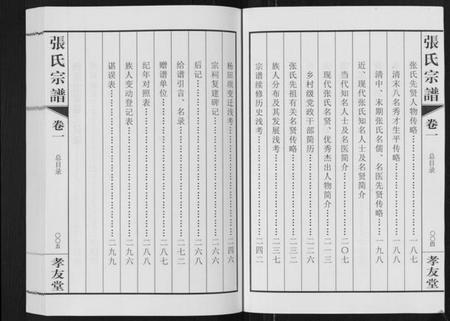 張氏宗譜
卷一
总目录
〇〇四
孝友堂
张氏先贤人物传略……一八七
清末八名秀才生平传略……一八八
清中、末期张氏名儒、名医先贤传略……一九八
近、现代张氏知名人士及名贤简介
当代知名人士及名医简介……二〇七
现代张氏名贤、优秀杰出人物简介……二一三
乡村级党政干部简历……二二六
张氏先祖有关名贤传略……二三二
族人分布及其发展浅考……二三七
宗谱续修历史浅考……二四二
杨垣废变迁浅考……二四六
宗祠复建碑记……二六六
后记……二六八
给谱引言、名录……二七二
赠谱单位……二八七
纪年对照表……二八八
族人变动登记表……二九六
谌误表……二九九
張氏宗譜
卷一
总目录
〇〇五
孝友堂